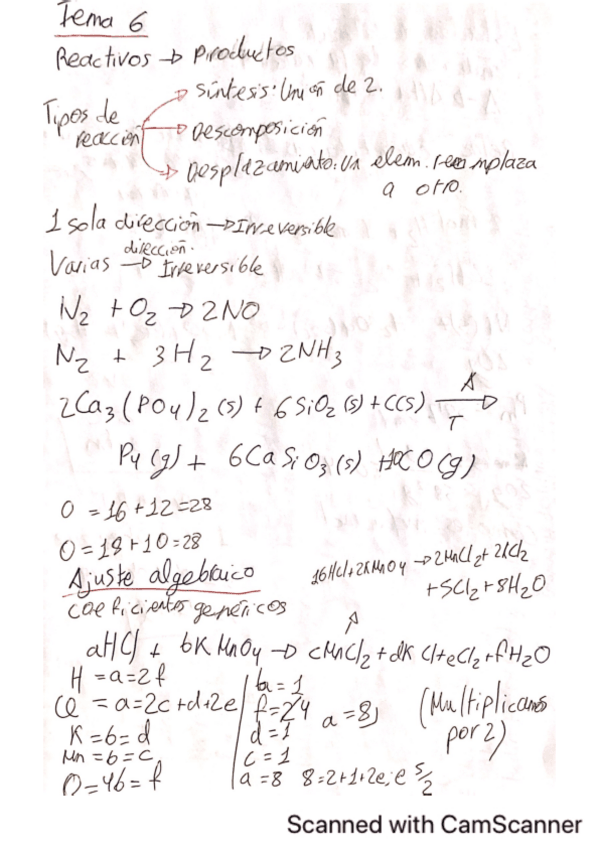 Tema 6
Reactivos → Productos
Síntesis: Unión de 2.
Tipos de reacción
Descomposición
Desplazamiento: Un elem. reemplaza
a otro.
1 sola dirección → Irreversible
Varias dirección. → Irreversible
N2 + O2 → 2NO
N2 + 3H2 → 2NH3
2Ca3(PO4)2 (s) + 6SiO2 (s) + C(s) →
T
P4 (g) + 6CaSiO3 (s) + 10CO (g)
O = 16 + 12 = 28
O = 18 + 10 = 28
Ajuste algebraico
16HCl + 2KMnO4 → 2MnCl2 + 2KCl2
+ 5Cl2 + 8H2O
coeficientes genéricos
aHCl + bKMnO4 → cMnCl2 + dKCl + eCl2 + fH2O
H = a = 2f
Cl = a = 2c + d + 2e
K = b = d
Mn = b = c
O = 4b = f
b = 1
f = 4
d = 1
c = 1
a = 8
a = 8
8 = 2 + 1 + 2e; e 5/2
(Multiplicamos
por 2)
Scanned with CamScanner